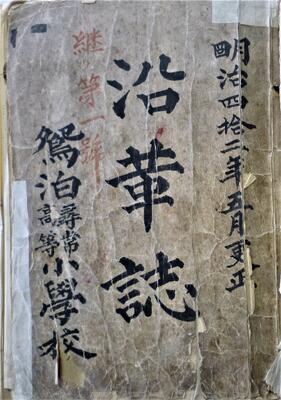 明治四拾二年五月更正
沿革誌
継第一号
鴛泊尋常高等小學校